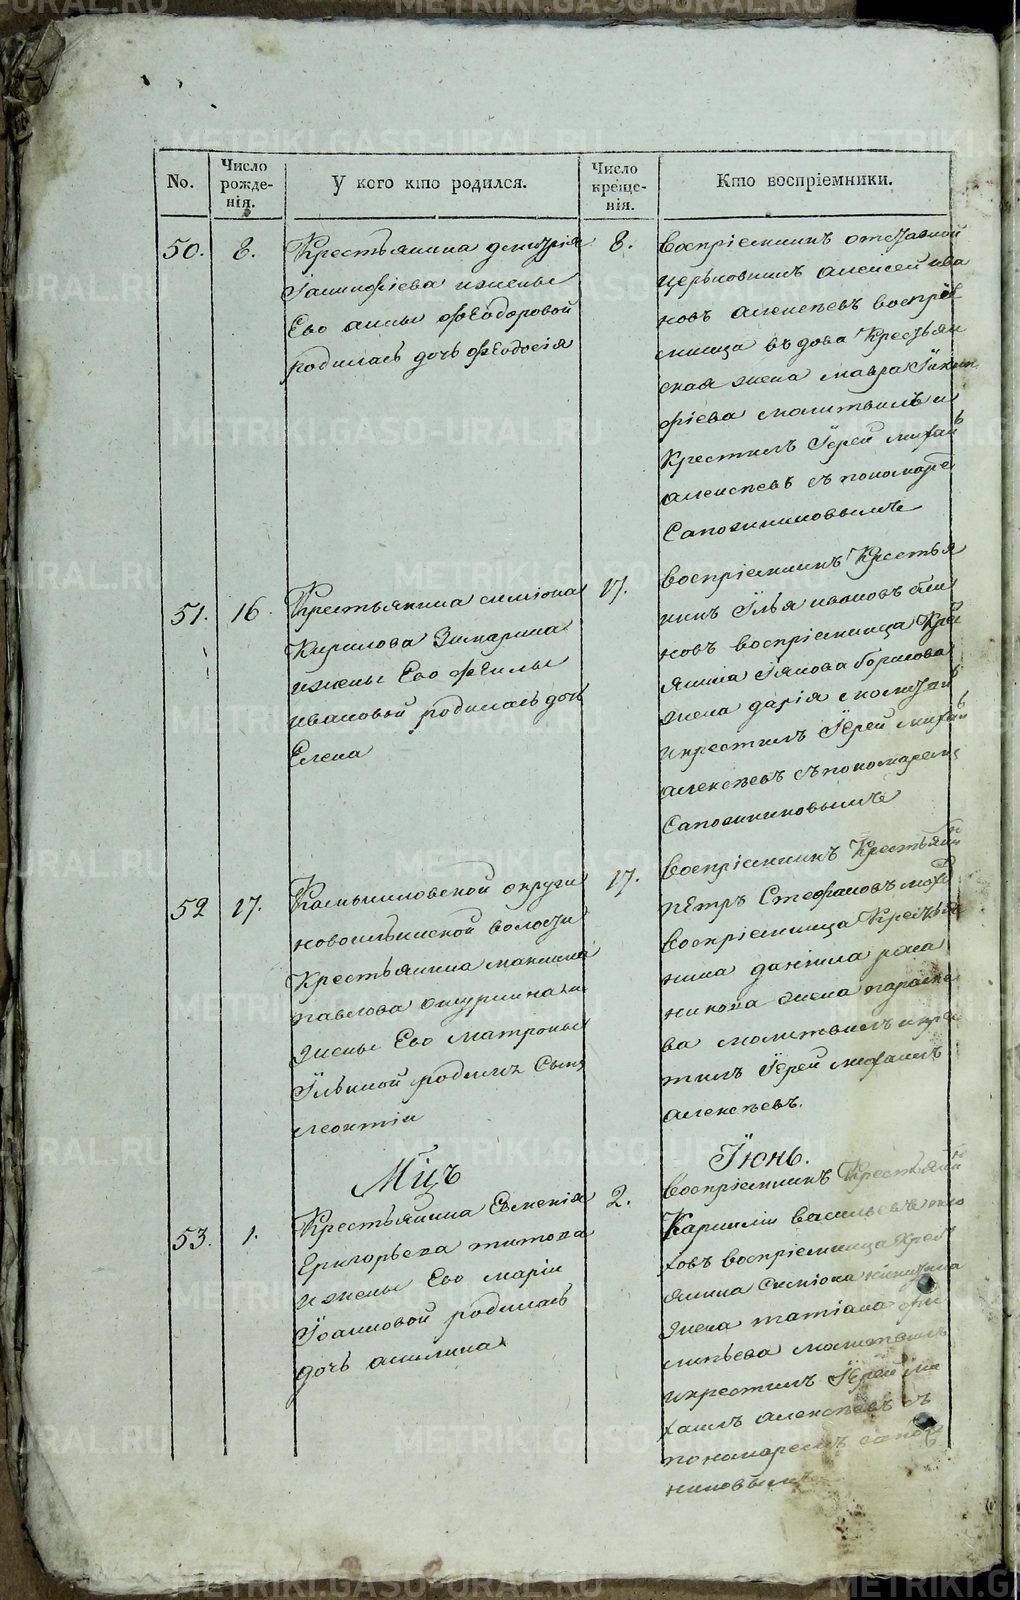 No.
Число рожде-
нія.
У кого кто родился.
Число креще-
нія.
Кто воспріемники.
50.
8.
Крестьянина димитрія
Iакинфіева ижены
Ево анны фЕодоровой
родилась дочь фЕодосія
8.
воспріемникъ отставной
церьковникъ алексей ива
новъ алексѣевъ воспріе
мница вдова Крестьян
ская жена мавра Iакин
фіева молитвилъ и
Крестилъ Iерей михаи
алексѣевъ съ пономаре
Сапожниковымъ
51.
16.
Крестьянина симіона
Кирилова
ижены Ево
ивановой родилась дочь
Елена
17.
воспріемникъ Крестья
нинъ Илья ивановъ
новъ воспріемница Кре
янина Iякова борисова
жена дарія молитви
икрестилъ Iерей михаи
алексѣевъ съпономаремъ
Сапожниковымъ
52
17.
Камышловской округи
новопышминской волости
Крестьянина максима
павлова
жены Ево матроны
Ильиной родилъ Сынъ
леонтіи
17.
воспріемникъ Крестьяни
пЕтръ Стефановъ
воспріемница Крестья
нина даніила рома
никова жена параске
ва молитвилъ икрес
тилъ Iерей михаилъ
алексѣевъ.
Мцъ
Iюнь.
53.
1.
Крестьянина Евгенія
Григорьева титова
ижены Ево маріи
Iоанновой родилась
дочь акилина
2.
воспріемникъ Крестьяни
Карнилій васильевъ
ховъ воспріемница Крес
янина Симіона никитина
жена татіана фи
липьева молитвилъ
икрестилъ Iерей ми
хаилъ алексѣевъ съ
понамаремъ сапож
никовымъ